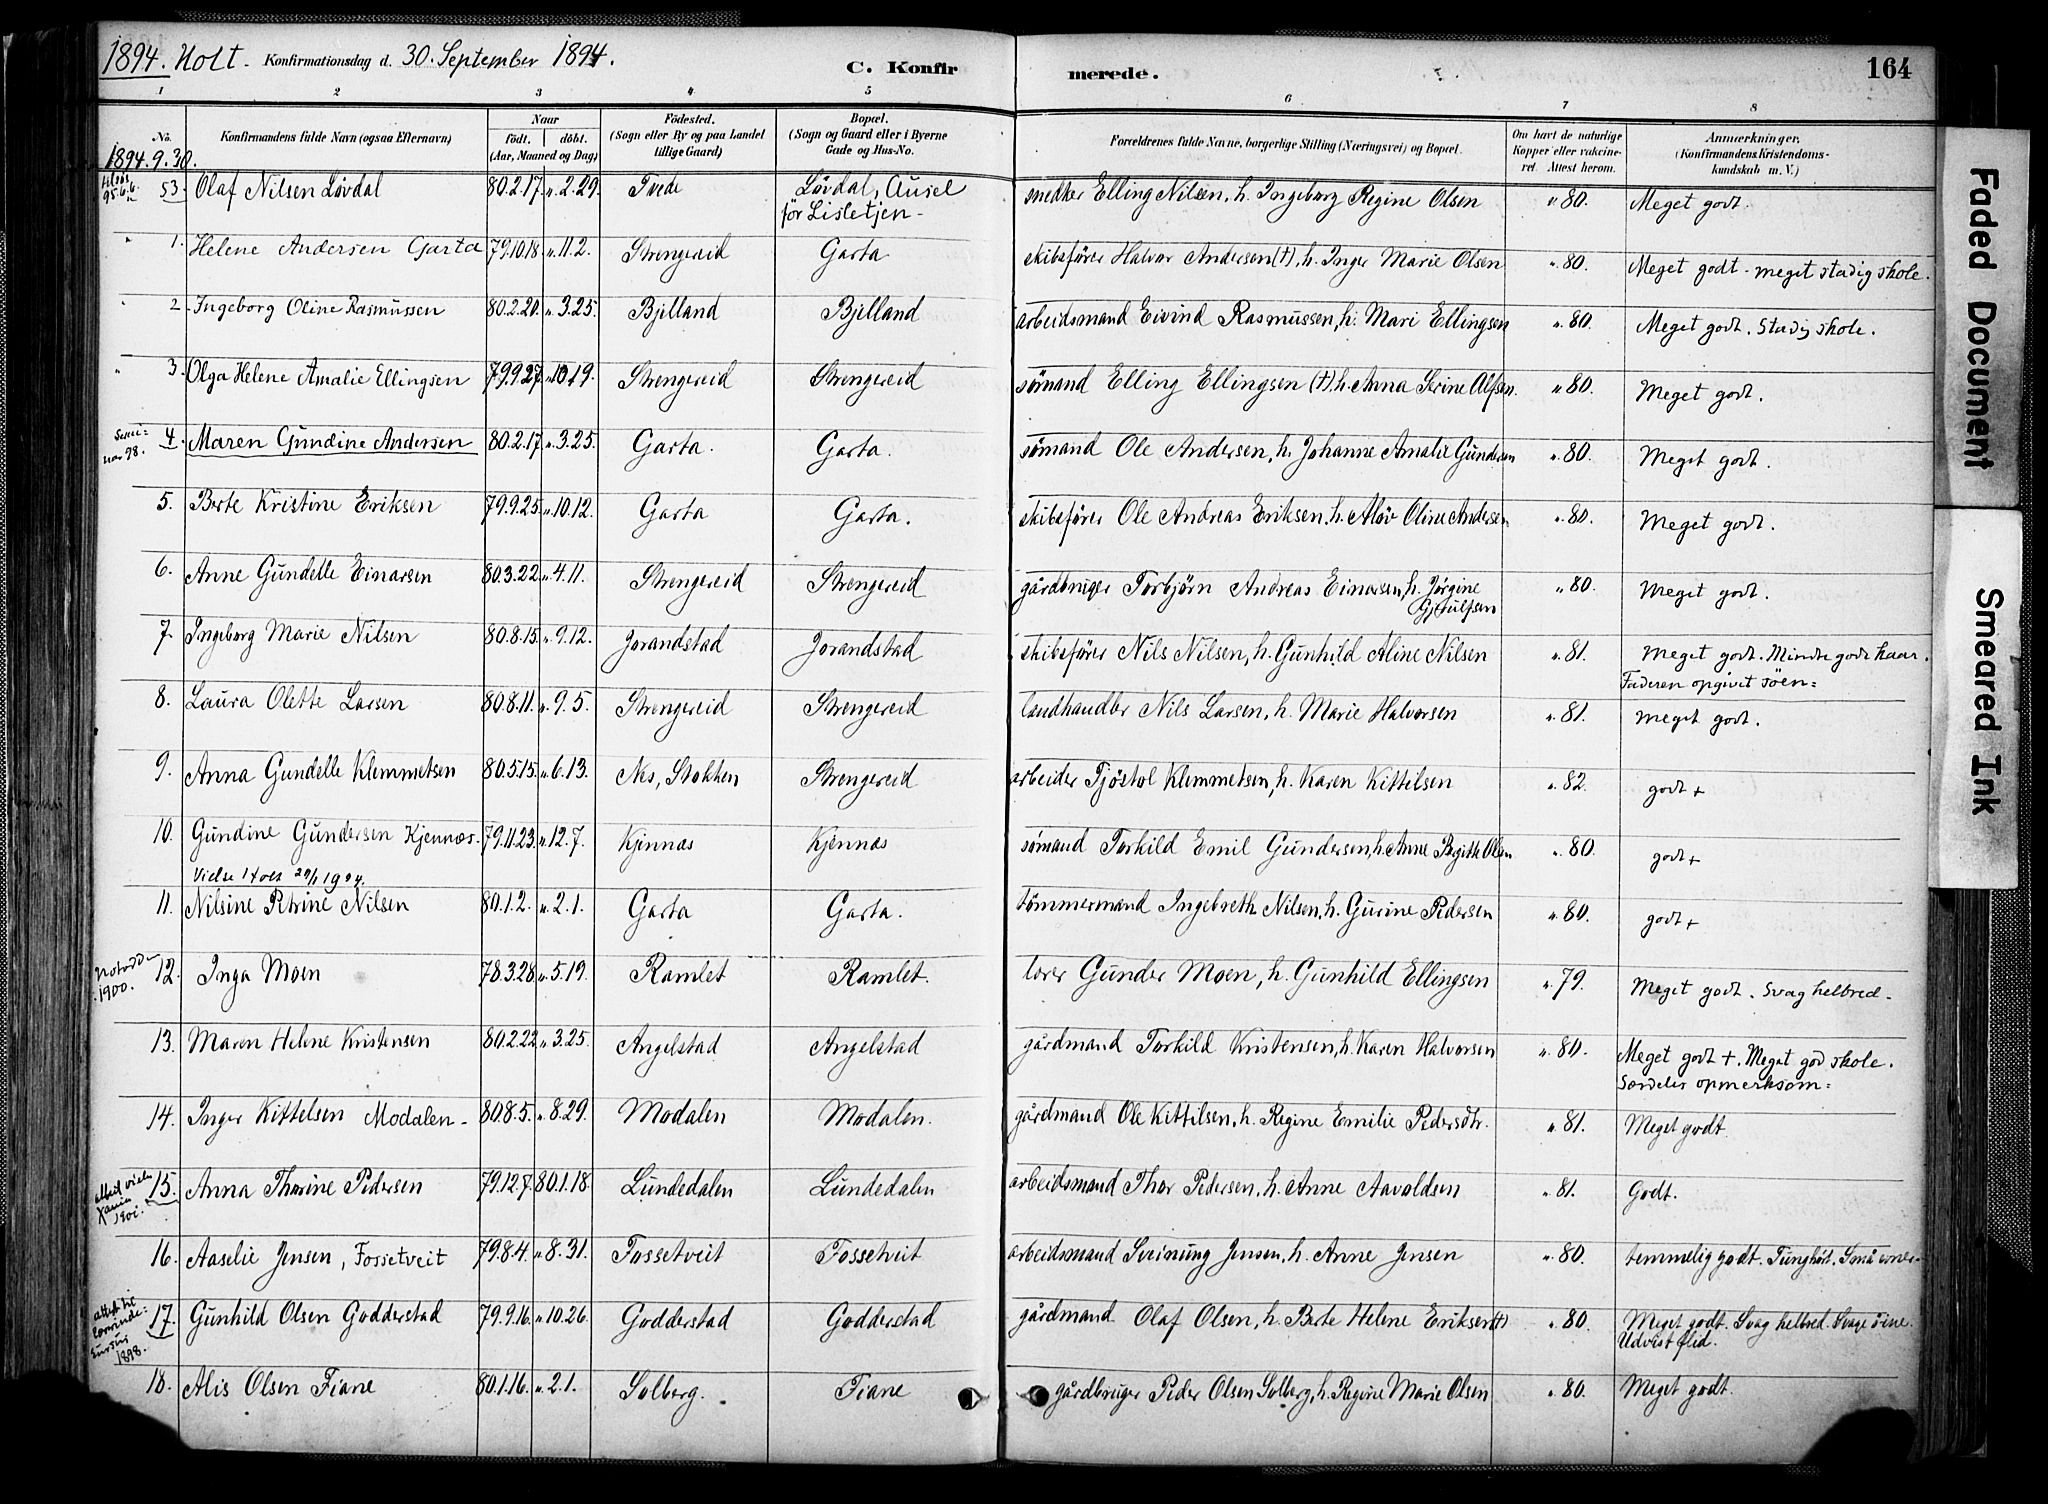 1894. Holt. Konfirmationsdag d. 30. September 1894. C. Konfir merede. 164
1 2 3 4 5 6 7 8
No. Konfirmandens fulde Navn (ogsaa Efternavn) Naar født. døbt. (Aar, Maaned og Dag) Fødested. (Sogn eller By og paa Landet tillige Gaard) Bopæl. (Sogn og Gaard eller i Byerne Gade og Hus-No. Forældrenes fulde Navne, borgerlige Stilling (Næringsvei) og Bopæl. Om havt de naturlige Kopper eller vakcineret. Attest herom. Anmærkninger, (Konfirmandens Kristendomskundskab m. V.)
1894.9.30.
53. Olaf Nilsen Løvdal 80.2.17 „ 2.29. Tvede Løvdal, Ausel
før Lisletjen - snedker Elling Nilsen, h. Ingeborg Regine Olsen „ 80. Meget godt.
„ 1. Helene Andersen Garta 79.10.18. „ 11.2. Strengereid Garta skibsfører Halvor Andersen (†), h. Inger Marie Olsen „ 80. Meget godt - meget stadig skole.
„ 2. Ingeborg Oline Rasmussen 80.2.20. „ 3.25. Bjelland Bjelland arbeidsmand Eivind Rasmussen, h. Mari Ellingsen „ 80. Meget godt. Stadig skole.
„ 3. Olga Helene Amalie Ellingsen 79.9.27. „ 10.19. Strengereid Strengereid sømand Elling Ellingsen (†), h. Anna Serine Alfsen. „ 80. Meget godt.
Semi=
nar 98. 4. Maren Gundine Andersen 80.2.17. „ 3.25. Garta. Garta. sømand Ole Andersen, h. Johanne Amalie Gundersen „ 80. Meget godt.
5. Berte Kristine Eriksen 79.9.25. „ 10.12. Garta Garta. skibsfører Ole Andreas Eriksen, h. Aløv Oline Andersen „ 80. Meget godt.
6. Anne Gundelle Einarsen 80.3.22. „ 4.11. Strengereid Strengereid gårdbruger Torbjørn Andreas Einarsen, h. Jørgine „ 80. Meget godt.
7. Ingeborg Marie Nilsen 80.8.15. „ 9.12. Jorandstad Jorandstad skibsfører Nils Nilsen, h. Gunhild Aline Nilsen „ 81. Meget godt. Mindre gode kaar.
Faderen opgivet søen=
8. Laura Olette Larsen 80.8.11. „ 9.5. Strengereid Strengereid landhandler Nils Larsen, h. Marie Halvorsen „ 81. meget godt.
9. Anna Gundelle Klemmetsen 80.5.15. „ 6.13. Nes, Stokken Strengereid arbeider Tjøstol Klemmetsen, h. Karen Kittilsen „ 82. godt +
10. Gundine Gundersen Kjennæs. 79.11.23. „ 12.7. Kjennæs Kjennæs sømand Torkild Emil Gundersen, h. Anne Birgitte Olsen „ 80. godt +
11. Nilsine Petrine Nilsen 80.1.2. „ 2.1. Garta Garta. tømmermand Ingebreth Nilsen, h. Gurine Pedersen „ 80. godt +
Notodden
1900. 12. Inga Moen 78.3.28. „ 5.19. Ramlet Ramlet. lærer Gunder Moen, h. Gunhild Ellingsen „ 79. Meget godt. Svag helbred.
13. Maren Helene Kristensen 80.2.22. „ 3.25. Angelstad Angelstad gårdmand Torkild Kristensen, h. Karen Halvorsen „ 80. Meget godt +. Meget god skole.
Særdeles opmerksom=
14. Inger Kittelsen Modalen - 80.8.5. „ 8.29. Modalen Modalen. gårdmand Ole Kittilsen, h. Regine Emilie Pedersdtr. „ 81. Meget godt.
1901. 15. Anna Thorine Pedersen 79.12.7. 80.1.18. Lundedalen Lundedalen arbeidsmand Thor Pedersen, h. Anne Aavoldsen „ 81. Godt.
16. Aaselie Jensen, Fossetveit 79.8.4. „ 8.31. Fossetveit Fossetveit arbeidsmand Sveinung Jensen, h. Anne Jensen „ 80. temmelig godt. Tunghørt. Små evner-
1898. 17. Gunhild Olsen Godderstad 79.9.16. „ 10.26. Godderstad Godderstad gårdmand Olaf Olsen, h. Berte Helene Eriksen (†) „ 80. Meget godt. Svag helbred. Svage øine.
Udvist flid.
18. Alis Olsen Fiane 80.1.16. „ 2.1. Solberg. Fiane gårdbruger Peder Olsen Solberg, h. Regine Marie Olsen „ 80. Meget godt.
Faded Document
Smeared Ink